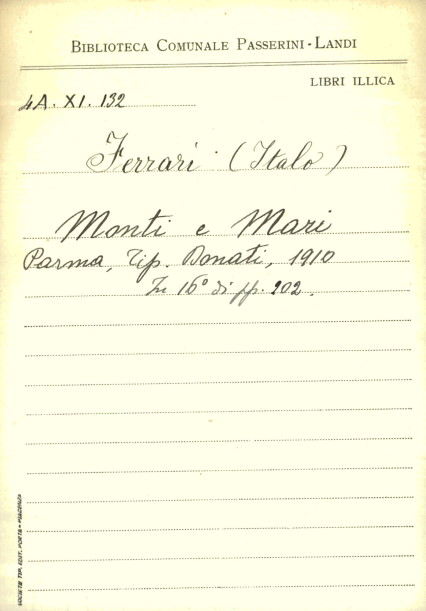 BIBLIOTECA COMUNALE PASSERINI-LANDI
LIBRI ILLICA
4A. XI. 132
Ferrari (Italo)
Monti e Mari
Parma, Tip. Donati, 1910
In 16° di pp. 202.
SOCIETÀ TIP. EDIT. PORTA - PIACENZA